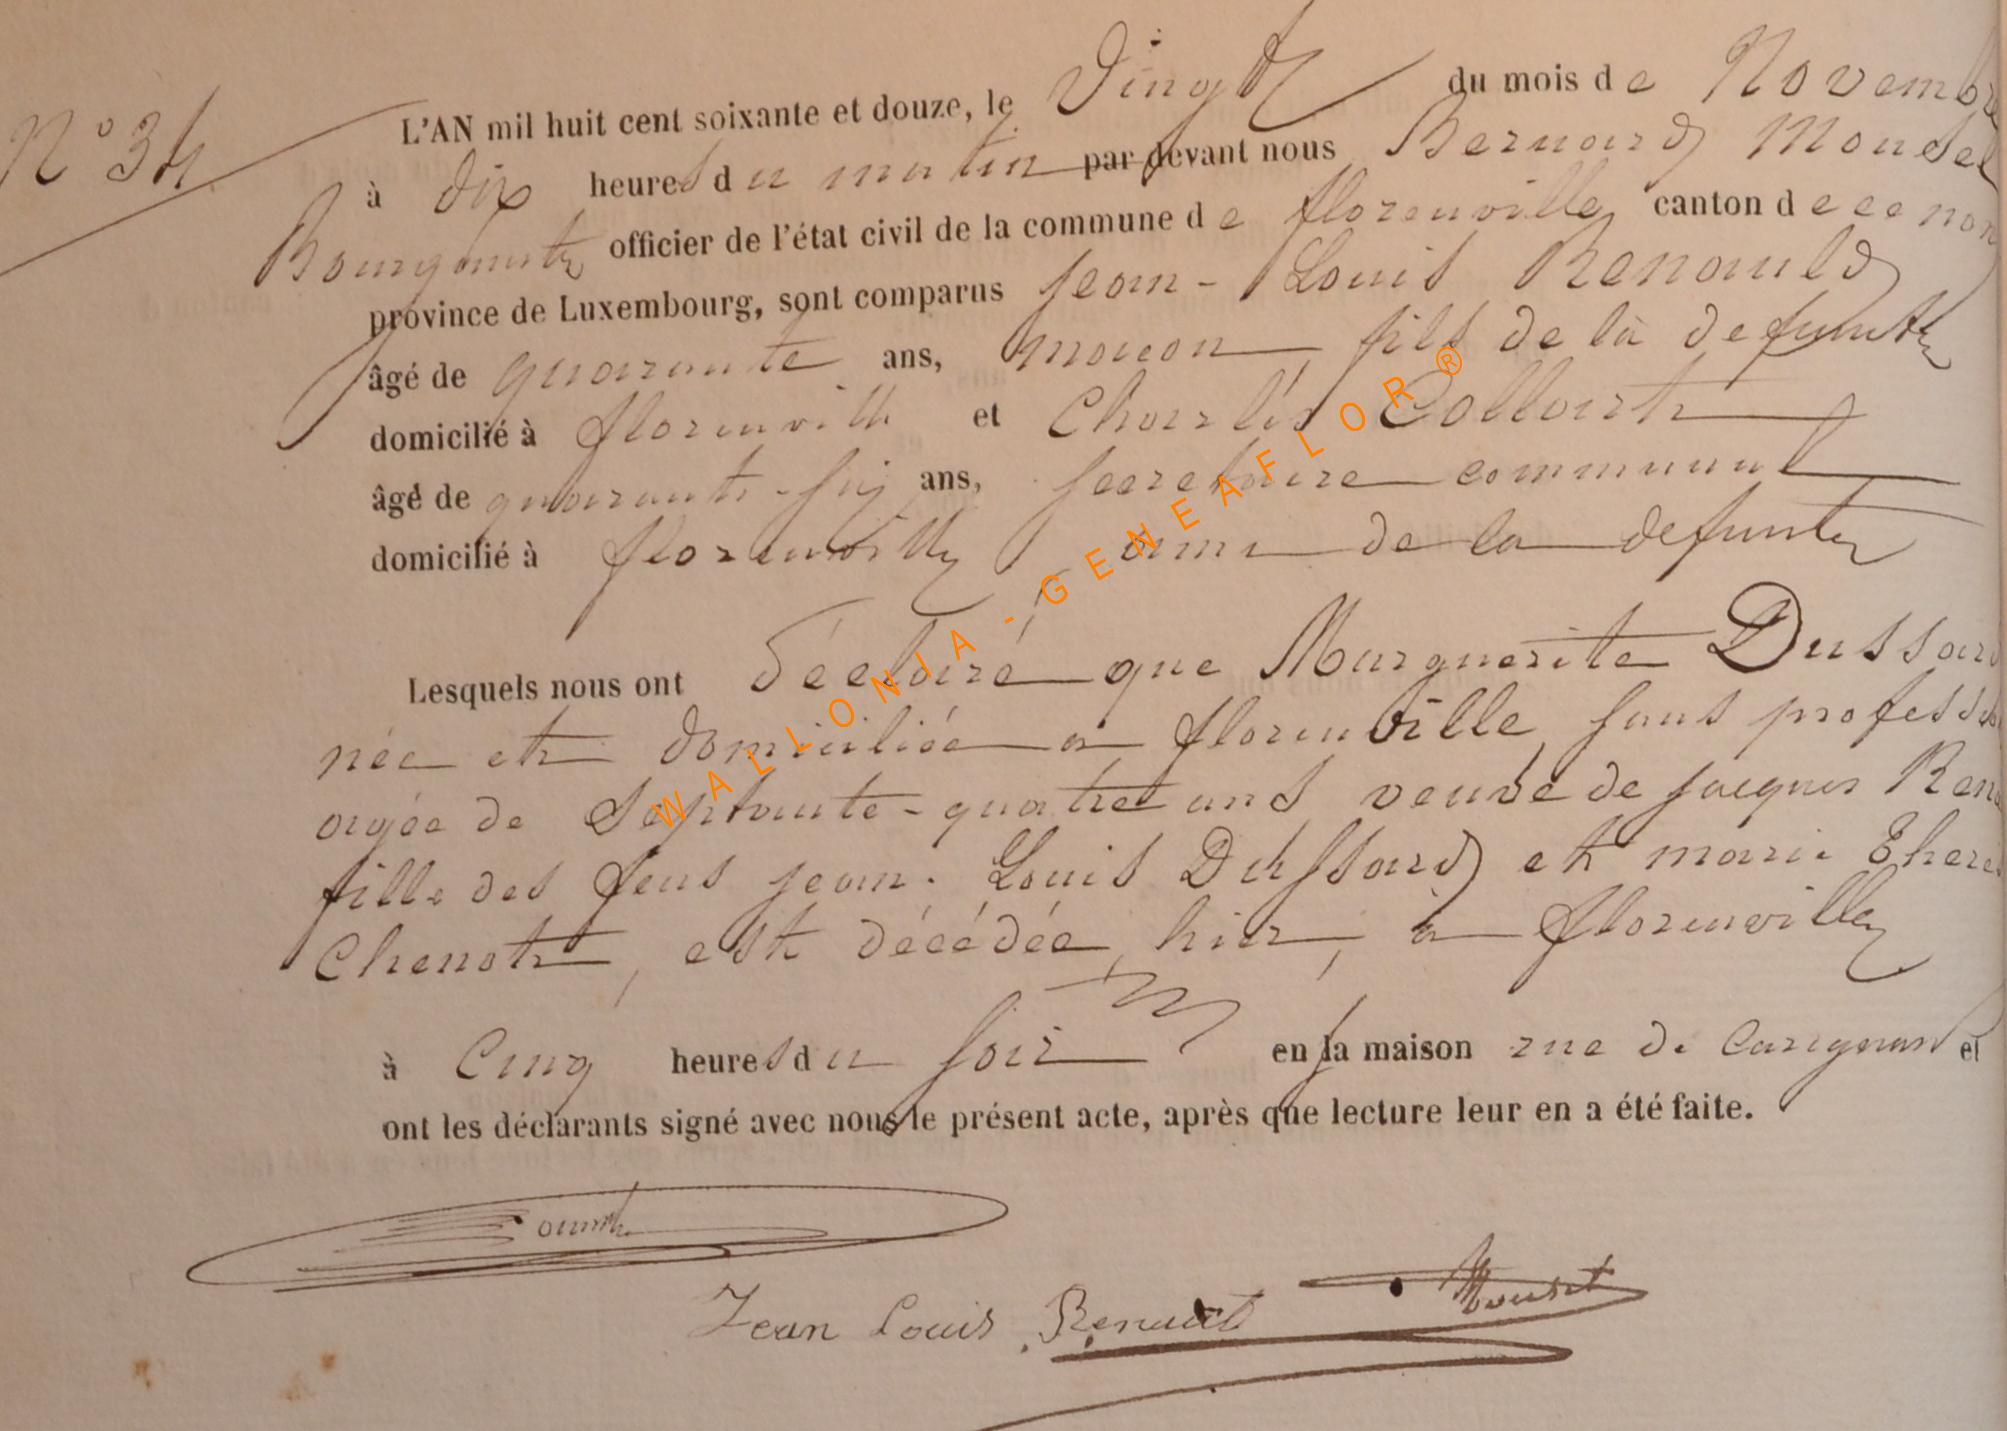 N° 34.
L'AN mil huit cent soixante et douze, le Vingt du mois de Novembre
à dix heures du matin par devant nous Bernard Mousel
Bourgmestre officier de l'état civil de la commune de florenville canton de ce nom
province de Luxembourg, sont comparus Jean-Louis Renauld
âgé de quarante ans, macon, fils de la defunte
domicilié à florenville et Charles Collart
âgé de quarante-six ans, secretaire communal
domicilié à florenville, ami de la defunte
Lesquels nous ont déclaré que Marguerite Dussard
née et domiciliée a florenville, sans profession
agée de Septante-quatre ans, veuve de jacques Ren
fille des feus jean-Louis Dussard et marie Theres
Chenot, est décédée, hier, à florenville
à Cinq heures du soir en sa maison rue de Carignan et
ont les déclarants signé avec nous le présent acte, après que lecture leur en a été faite.
Jean Louis Renault
WALLONIA - GENEAFLOR ®